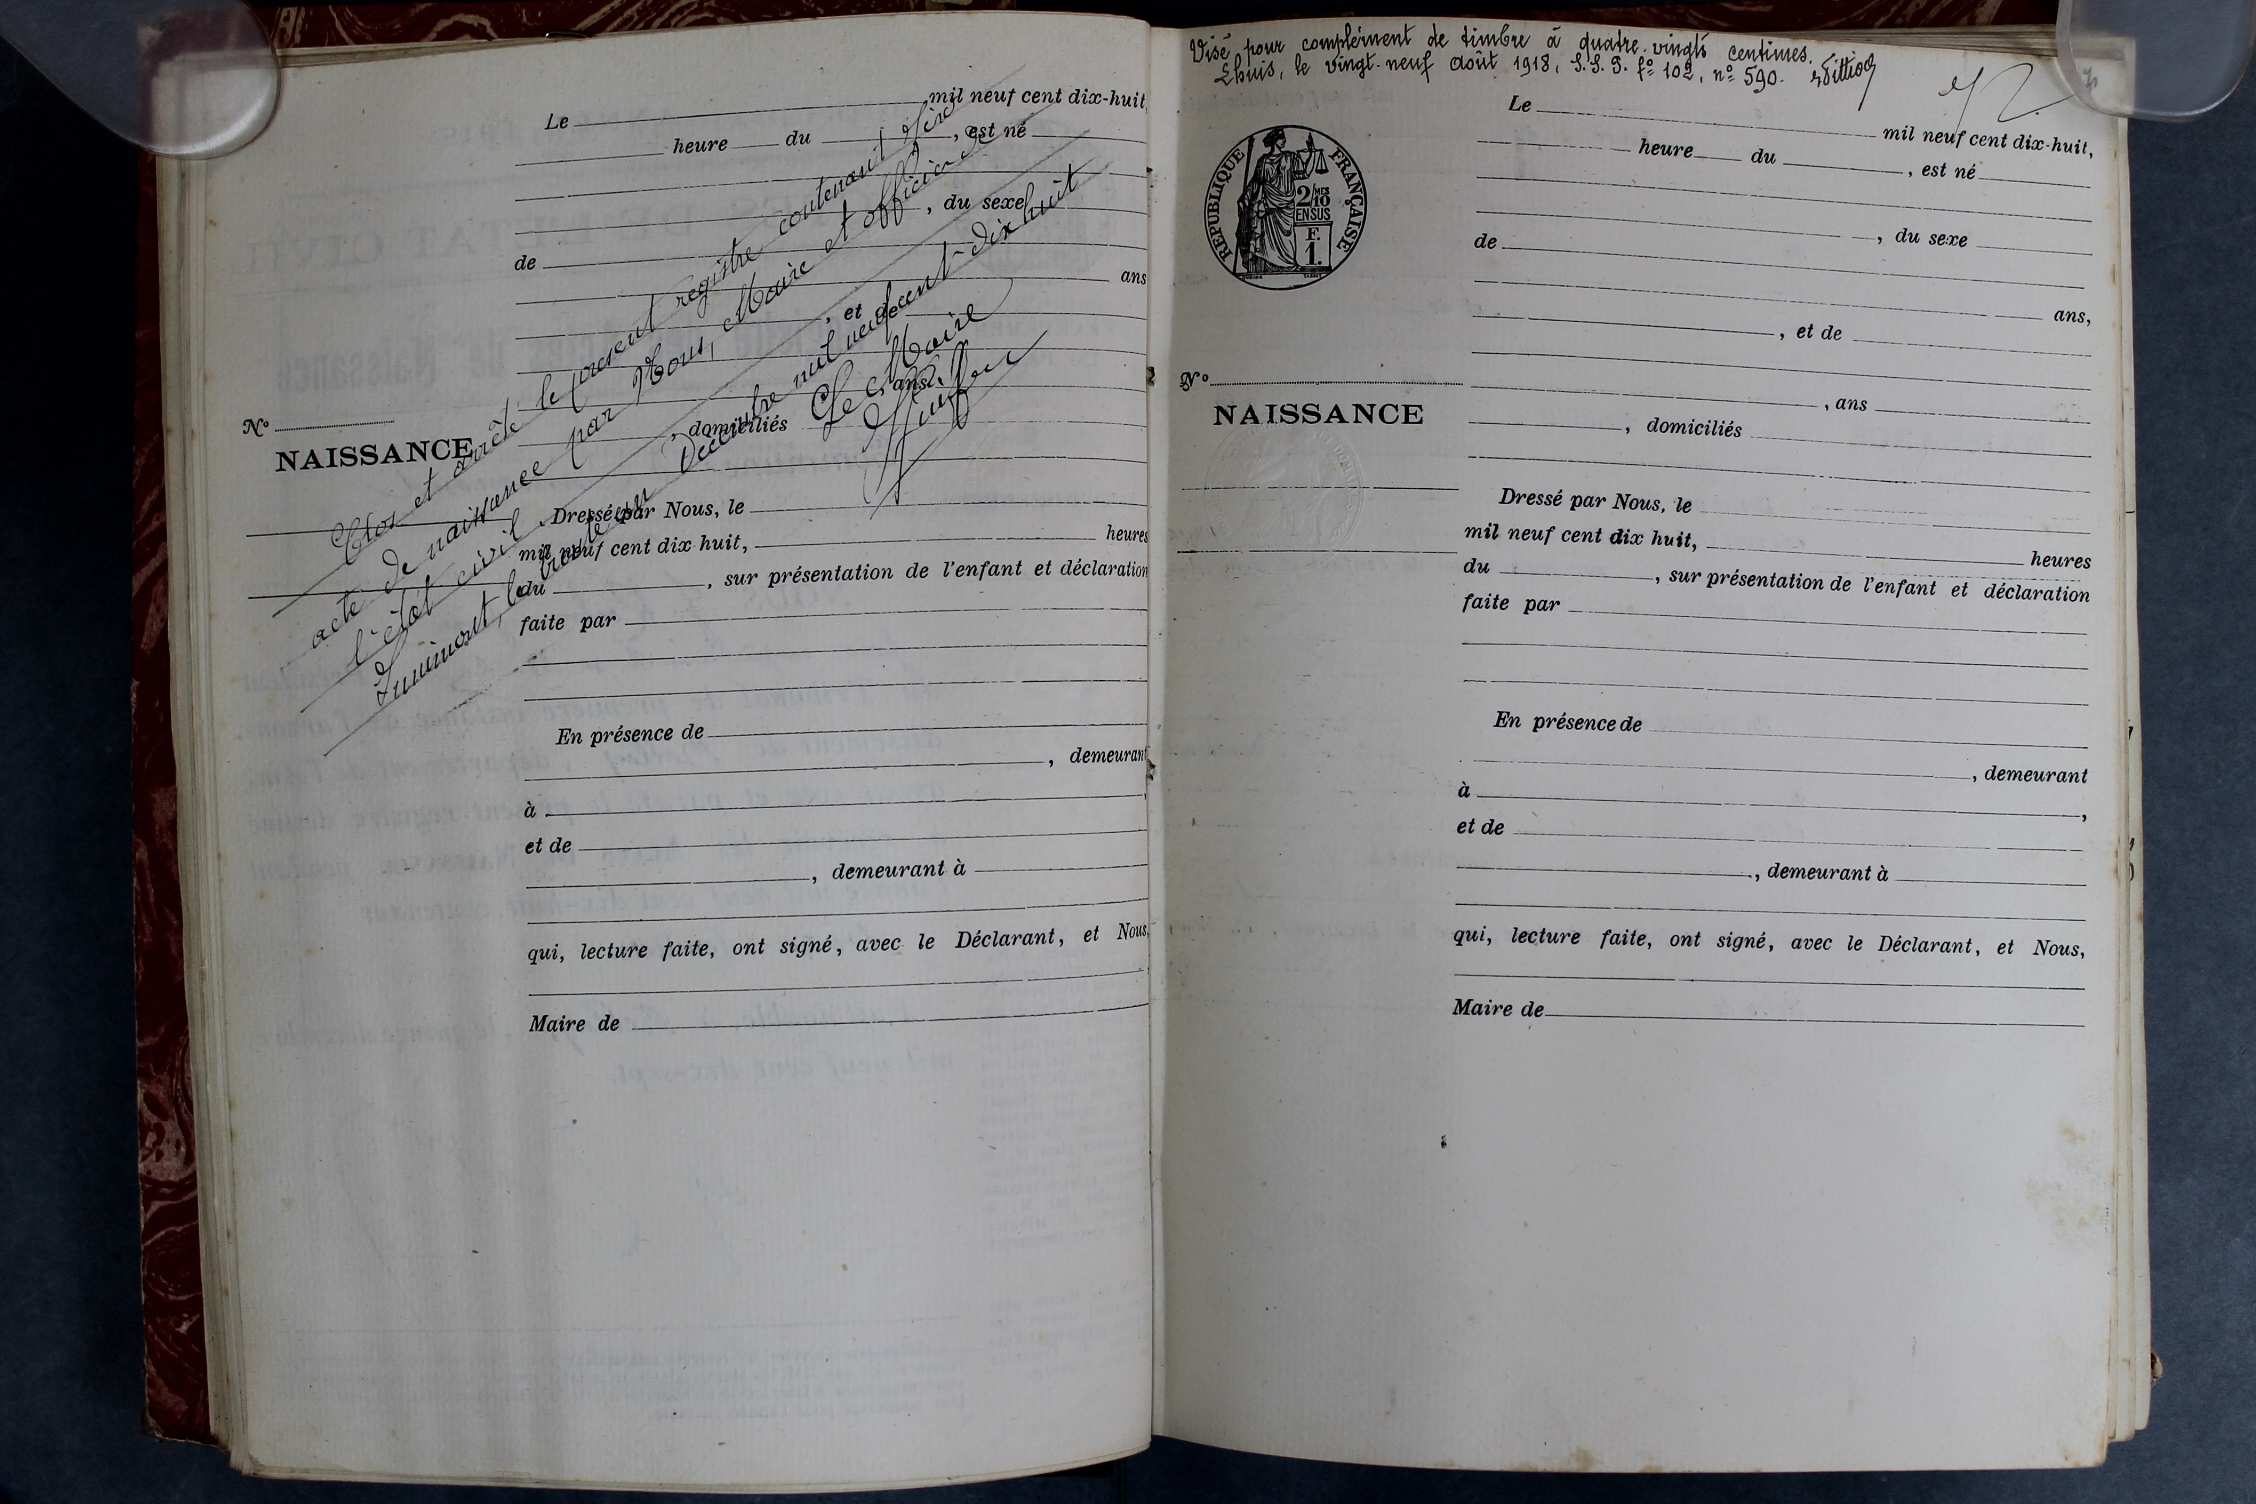 Le mil neuf cent dix-huit,
heure du , est né
, du sexe
de
ans
, et de
ans,
N° , domiciliés
NAISSANCE
Dressé par Nous, le
mil neuf cent dix huit, heures
du , sur présentation de l'enfant et déclaration
faite par
En présence de
, demeurant
à
et de
, demeurant à
qui, lecture faite, ont signé, avec le Déclarant, et Nous,
Maire de
Clos et arrêté le présent registre contenant
acte de naissance par Nous, Maire et officier de
l'état civil
Innimont, le trente un Décembre mil neuf cent dix huit
Le Maire
Visé pour complément de timbre à quatre-vingts centimes.
Lhuis, le vingt-neuf août 1918, S.S.P. f° 102, n° 590.
RÉPUBLIQUE FRANÇAISE
2/10 MES
EN SUS
F.
1.
Le mil neuf cent dix-huit,
heure du , est né
, du sexe
de
ans,
, et de
N°
, ans
NAISSANCE
, domiciliés
Dressé par Nous, le
mil neuf cent dix huit, heures
du , sur présentation de l'enfant et déclaration
faite par
En présence de
, demeurant
à ,
et de
, demeurant à
qui, lecture faite, ont signé, avec le Déclarant, et Nous,
Maire de